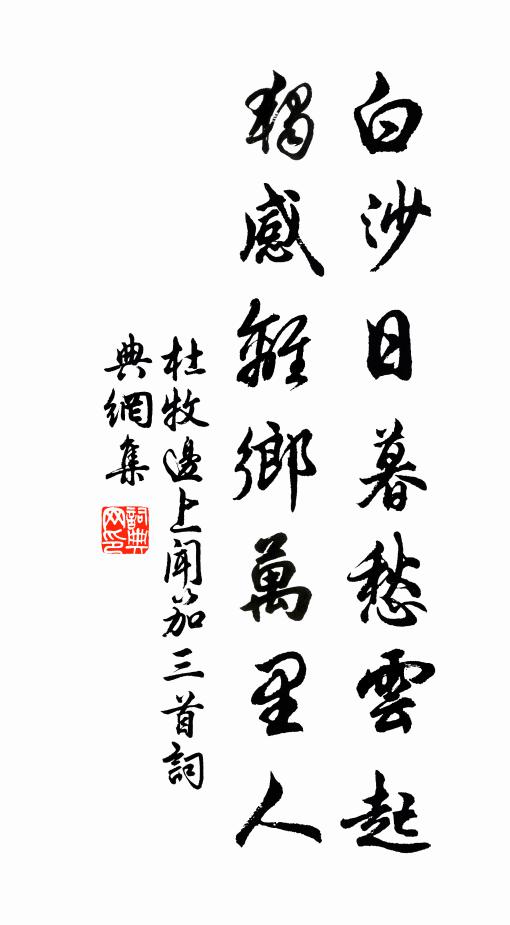 白沙日暮愁雲起
獨感離鄉萬里人
杜牧邊上聞笳三首詞
典網集
詞典網印